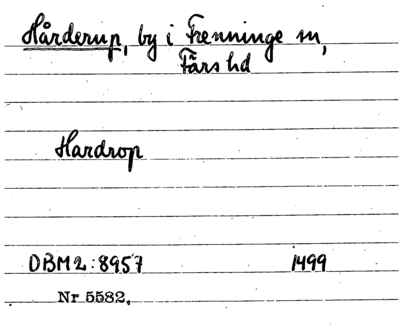 Hårderup, by i Frenninge sn,
Färs hd
Hardrop
DBM2:8957 1499
Nr 5582.